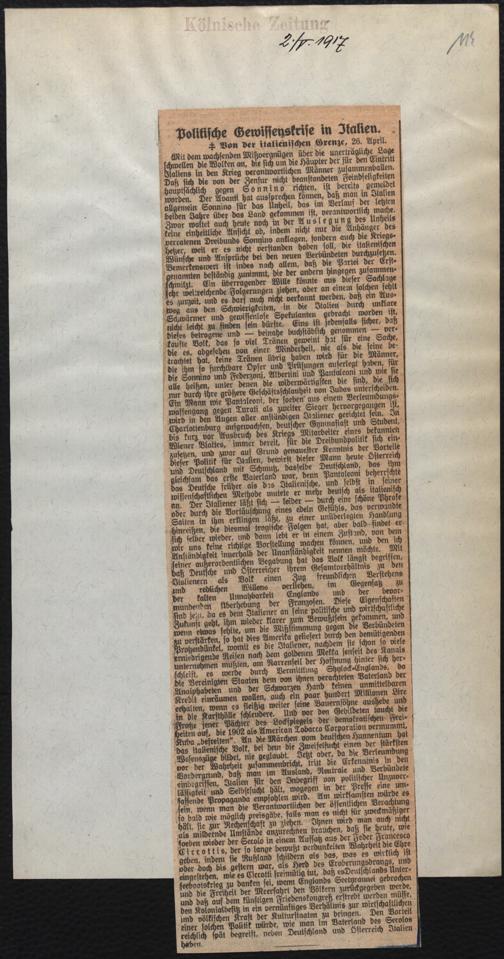 Kölnische Zeitung
2/V. 1917
Politische Gewissenskrise in Italien.
‡ Von der italienischen Grenze, 26. April.
Mit dem wachsenden Mißvergnügen über die unerträgliche Lage
schwellen die Wolken an, die sich um die Häupter der für den Eintritt
Italiens in den Krieg verantwortlichen Männer zusammenballen.
Daß sich die von der Zensur nicht beanstandeten Feindseligkeiten
hauptsächlich gegen Sonnino richten, ist bereits gemeldet
worden. Der Avanti hat aussprechen können, daß man in Italien
allgemein Sonnino für das Unheil, das im Verlauf der letzten
beiden Jahre über das Land gekommen ist, verantwortlich mache.
Zwar waltet auch heute noch in der Auslegung des Unheils
keine einheitliche Ansicht ob, indem nicht nur die Anhänger des
verratenen Dreibunds Sonnino anklagen, sondern auch die Kriegs-
hetzer, weil er es nicht verstanden haben soll, die italienischen
Wünsche und Ansprüche bei den neuen Verbündeten durchzusetzen.
Bemerkenswert ist indes nach allem, daß die Partei der Erst-
genannten beständig zunimmt, die der andern hingegen zusammen-
schmilzt. Ein überragender Wille könnte aus dieser Sachlage
sehr weitreichende Folgerungen ziehen, aber an einem solchen fehlt
es zurzeit, und es darf auch nicht verkannt werden, daß ein Aus-
weg aus den Schwierigkeiten, in die Italien durch unklare
Schwärmer und gewissenlose Spekulanten gebracht worden ist,
nicht leicht zu finden sein dürfte. Eins ist jedenfalls sicher, daß
dieses betrogene und — beinahe buchstäblich genommen — ver-
kaufte Volk, das so viel Tränen geweint hat für eine Sache,
die es, abgesehen von einer Minderheit, nie als die seine be-
trachtet hat, keine Tränen übrig haben wird für die Männer,
die ihm so furchtbare Opfer und Prüfungen auferlegt haben, für
die Sonnino und Federzoni, Albertini und Pantaleoni und wie sie
alle heißen, unter denen die widerwärtigsten die sind, die sich
nur durch ihre größere Geschäftsschlauheit von Judas unterscheiden.
Ein Mann wie Pantaleoni, der soeben aus einem Verleumdungs-
waffengang gegen Turati als zweiter Sieger hervorgegangen ist,
wird in den Augen aller anständigen Italiener gerichtet sein. In
Charlottenburg aufgewachsen, deutscher Gymnasiast und Student,
bis kurz vor Ausbruch des Kriegs Mitarbeiter eines bekannten
Wiener Blattes, immer bereit, für die Dreibundpolitik sich ein-
zusetzen, und zwar auf Grund genauester Kenntnis der Vorteile
dieser Politik für Italien, bewirft dieser Mann heute Österreich
und Deutschland mit Schmutz, dasselbe Deutschland, das ihm
gleichsam das erste Vaterland war, denn Pantaleoni beherrschte
das Deutsche früher als das Italienische, und selbst in seiner
wissenschaftlichen Methode mutete er mehr deutsch als italienisch
an. Der Italiener läßt sich — leider — durch eine schöne Phrase
oder durch die Vortäuschung eines edeln Gefühls, das verwandte
Saiten in ihm erklingen läßt, zu einer unüberlegten Handlung
hinreißen, die diesmal tragische Folgen hat, aber bald findet er
sich selber wieder, und dann lebt er in einem Zustand, von dem
wir uns keine richtige Vorstellung machen können, und den ich
Anständigkeit innerhalb der Unanständigkeit nennen möchte. Mit
seiner außerordentlichen Begabung hat das Volk längst begriffen,
daß Deutsche und Österreicher ihrem Gesamtverhältnis zu den
Italienern als Volk einen Zug freundlichen Verstehens
und redlichen Willens verliehen, im Gegensatz zu
der kalten Unnahbarkeit Englands und der bevor-
mundenden Überhebung der Franzosen. Diese Eigenschaften
sind jetzt, da es dem Italiener an seine politische und wirtschaftliche
Zukunft geht, ihm wieder klarer zum Bewußtsein gekommen, und
wenn etwas fehlte, um die Mißstimmung gegen die Verbündeten
zu verstärken, so hat dies Amerika geliefert durch den demütigenden
Protzendünkel, womit es die Italiener, nachdem sie schon so viele
erniedrigende Reisen nach dem goldenen Mekka jenseit des Kanals
unternehmen mußten, am Narrenseil der Hoffnung hinter sich her-
schleift, es werde durch Vermittlung Shylock-Englands, da
die Vereinigten Staaten dem von ihnen verachteten Vaterland der
Analphabeten und der Schwarzen Hand keinen unmittelbaren
Kredit einräumen wollen, auch ein paar hundert Millionen Lire
erhalten, wenn es fleißig weiter seine Bauernsöhne aushebe und
in die Krafthölle schleudere. Und vor den Gebildeten taucht die
Fratze jener Wächter des Lockspiegels der demokratischen Frei-
heiten auf, die 1902 als American Tobacco Corporation vermummt,
Kuba „befreiten“. An die Märchen vom deutschen Hannentum hat
das italienische Volk, bei dem die Zweifelsucht einen der stärksten
Wesenszüge bildet, nie geglaubt. Jetzt aber, da die Verleumdung
vor der Wahrheit zusammenbricht, tritt die Erkenntnis in den
Vordergrund, daß man im Ausland, Neutrale und Verbündete
einbegriffen, Italien für den Inbegriff von politischer Unzuver-
lässigkeit und Selbstsucht hält, wogegen in der Presse eine um-
fassende Propaganda empfohlen wird. Am wirksamsten würde es
sein, wenn man die Verantwortlichen der öffentlichen Verachtung
so bald wie möglich preisgäbe, falls man es nicht für zweckmäßiger
hält, sie zur Rechenschaft zu ziehen. Ihnen wird man auch nicht
als mildernde Umstände anzurechnen brauchen, daß sie heute, wie
soeben wieder der Secolo in einem Aufsatz aus der Feder Francesco
Ciccottis, der so lange bewußt verdunkelten Wahrheit die Ehre
geben, indem sie Rußland schildern als das, was es wirklich ist
oder doch bis gestern war, als Herd des Eroberungsdrangs, und
eingestehen, wie es Cicotti freimütig tut, daß es Deutschlands Unter-
seebootskrieg zu danken sei, wenn Englands Seetyrannei gebrochen
und die Freiheit der Meerfahrt den Völkern zurückgegeben werde,
und daß auf dem künftigen Friedenskongreß erstrebt werden müsse,
den Kolonialbesitz in ein vernünftiges Verhältnis zur wirtschaftlichen
und völkischen Kraft der Kulturstaaten zu bringen. Den Vorteil
einer solchen Politik würde, wie man im Vaterland des Secolos
reichlich spät begreift, neben Deutschland und Österreich Italien
haben.